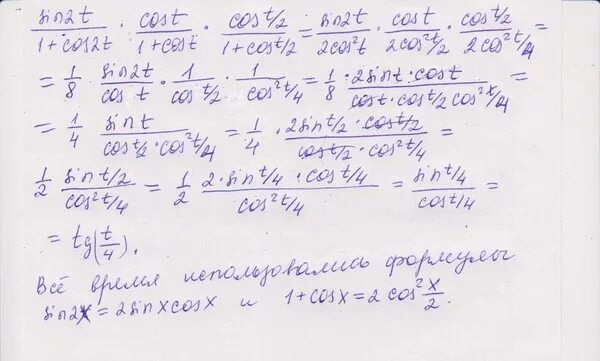 sin2t/(1+cos2t) · cost/(1+cost) · cos t/2/(1+cos t/2) = sin2t/(2cos²t) · cost/(2cos² t/2) · cos t/2/(2cos² t/4) =
= 1/8 · sin2t/cos t · 1/cos t/2 · 1/cos² t/4 = 1/8 · 2sint·cost/(cost·cos t/2 cos² t/4) =
= 1/4 sint/(cos t/2 · cos² t/4) = 1/4 · 2sin t/2 · cos t/2/(cos t/2 · cos² t/4) =
1/2 sin t/2/cos² t/4 = 1/2 2·sin t/4 · cos t/4/cos² t/4 = sin t/4/cos t/4 =
= tg(t/4).
Всё время использовались формулы
sin2x = 2sinxcosx и 1+cosx = 2cos² x/2.